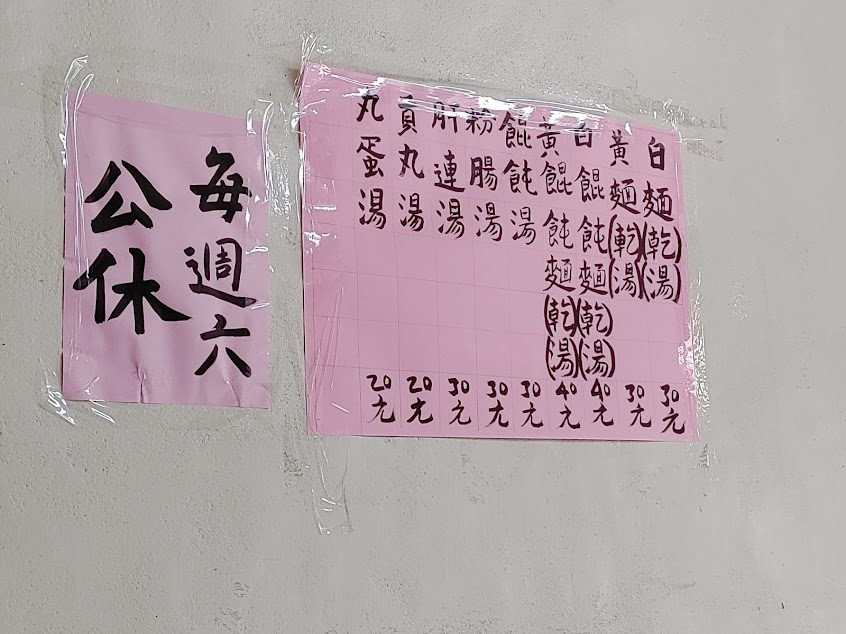 每週六
公休
白麵(乾)(湯) 30元
黃麵(乾)(湯) 30元
白餛飩麵(乾)(湯) 40元
黃餛飩麵(乾)(湯) 40元
餛飩湯 30元
粉腸湯 30元
肝連湯 30元
貢丸湯 20元
丸蛋湯 20元